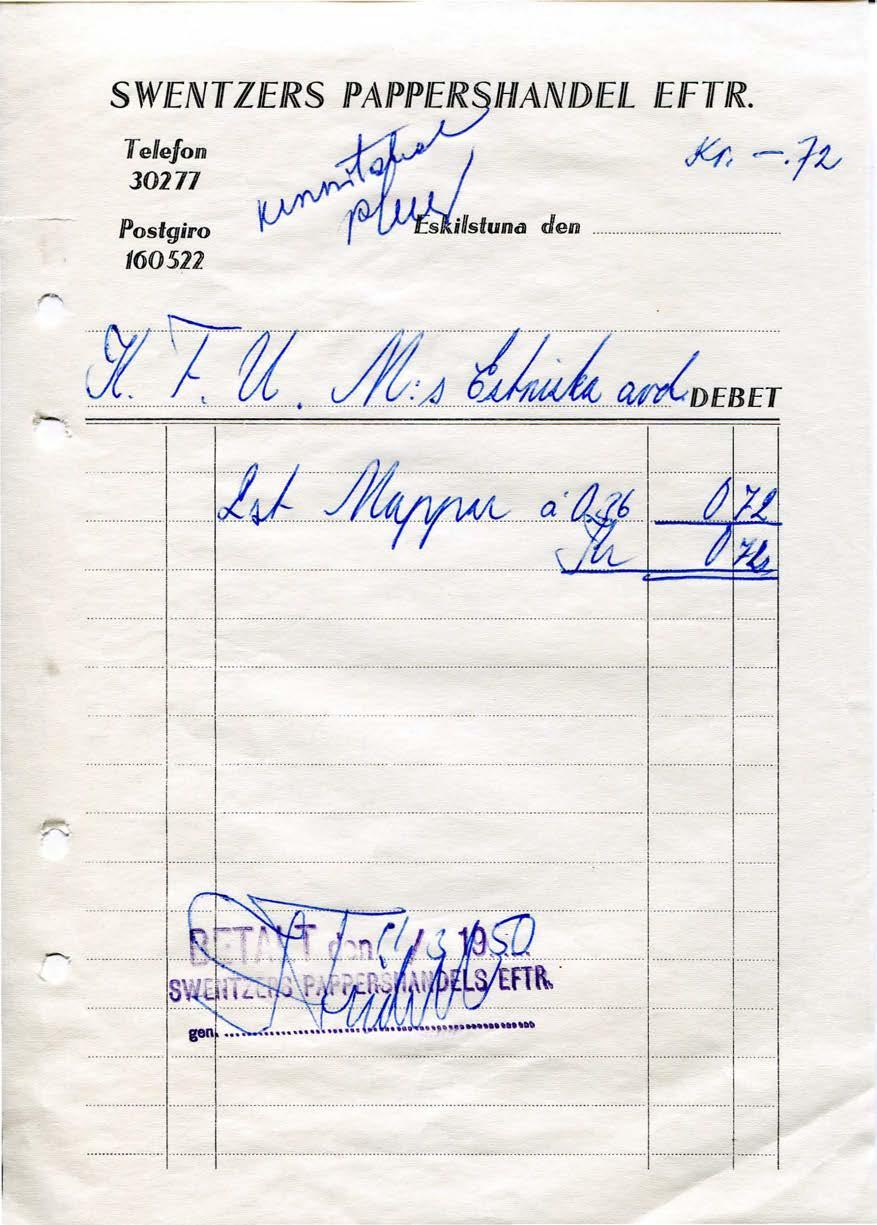 SWENTZERS PAPPERSHANDEL EFTR.
Telefon
30277
Kr. —.72
Postgiro
160522
Eskilstuna den
K. F. U. M:s Estniska avd. DEBET
2st Mappar à 0.36 0 72
Kr 0 72
BETALT den / 3 1950
SWENTZERS PAPPERSHANDELS EFTR.
gen.